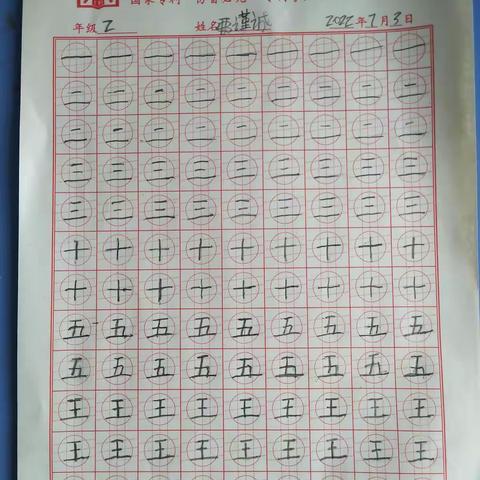 国家专利 仿冒必究
年级 2 姓名 谨诚 2022年7月3日
一 一 一 一 一 一 一 一 一
二 二 二 二 二 二 二 二 二
二 二 二 二 二 二 二 二 二
三 三 三 三 三 三 三 三 三
三 三 三 三 三 三 三 三 三
十 十 十 十 十 十 十 十 十
十 十 十 十 十 十 十 十 十
五 五 五 五 五 五 五 五 五
五 五 五 五 五 五 五 五 五
王 王 王 王 王 王 王 王 王
王 王 王 王 王 王 王 王 王